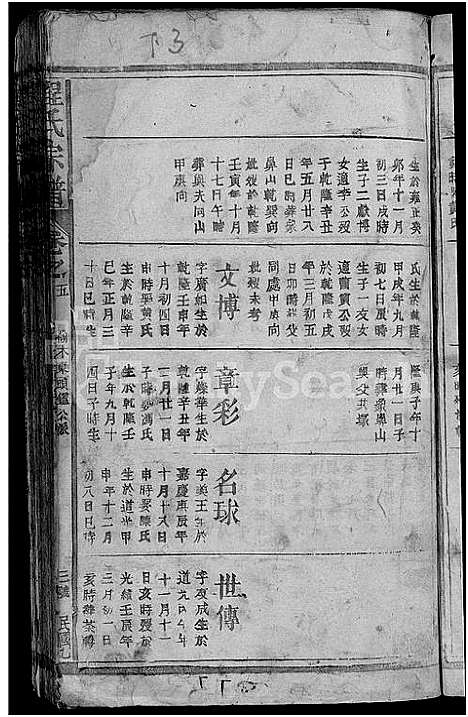 下3
程氏宗譜
卷之五
生於雍正癸
卯年十一月
初三日戌時
生子二獻博
女適李公歿
於乾隆辛丑
年五月廿八
日巳時葬象
鼻山乾巽向
妣歿於乾隆
壬寅年十月
十七日午時
葬與光同山
甲庚向
氏生於乾隆
甲戌年九月
初七日辰時
生子一友女
適蕭黃公歿
於乾隆戊戌
年三月初五
日卯時葬父
同處甲庚向
妣歿未考
文博
字廣如生於
乾隆壬申年
十月初四日
時娶黃氏
生於乾隆
己年正月三
十日巳時生
隆庚子年十
月廿一日子
時葬象鼻山
與父共塚
章彩
字燦華生於
乾隆辛丑年
二月廿一日
子時娶馮氏
生於乾隆壬
子年九月十
四日子時生
名球
字美玉生於
嘉慶庚辰年
十月十六日
申時娶陳氏
生於道光甲
申年十二月
初八日巳時
世傳
字友成生於
道光
十一月十一
日亥時歿於
光緒壬辰年
三月初一日
亥時葬茶塆